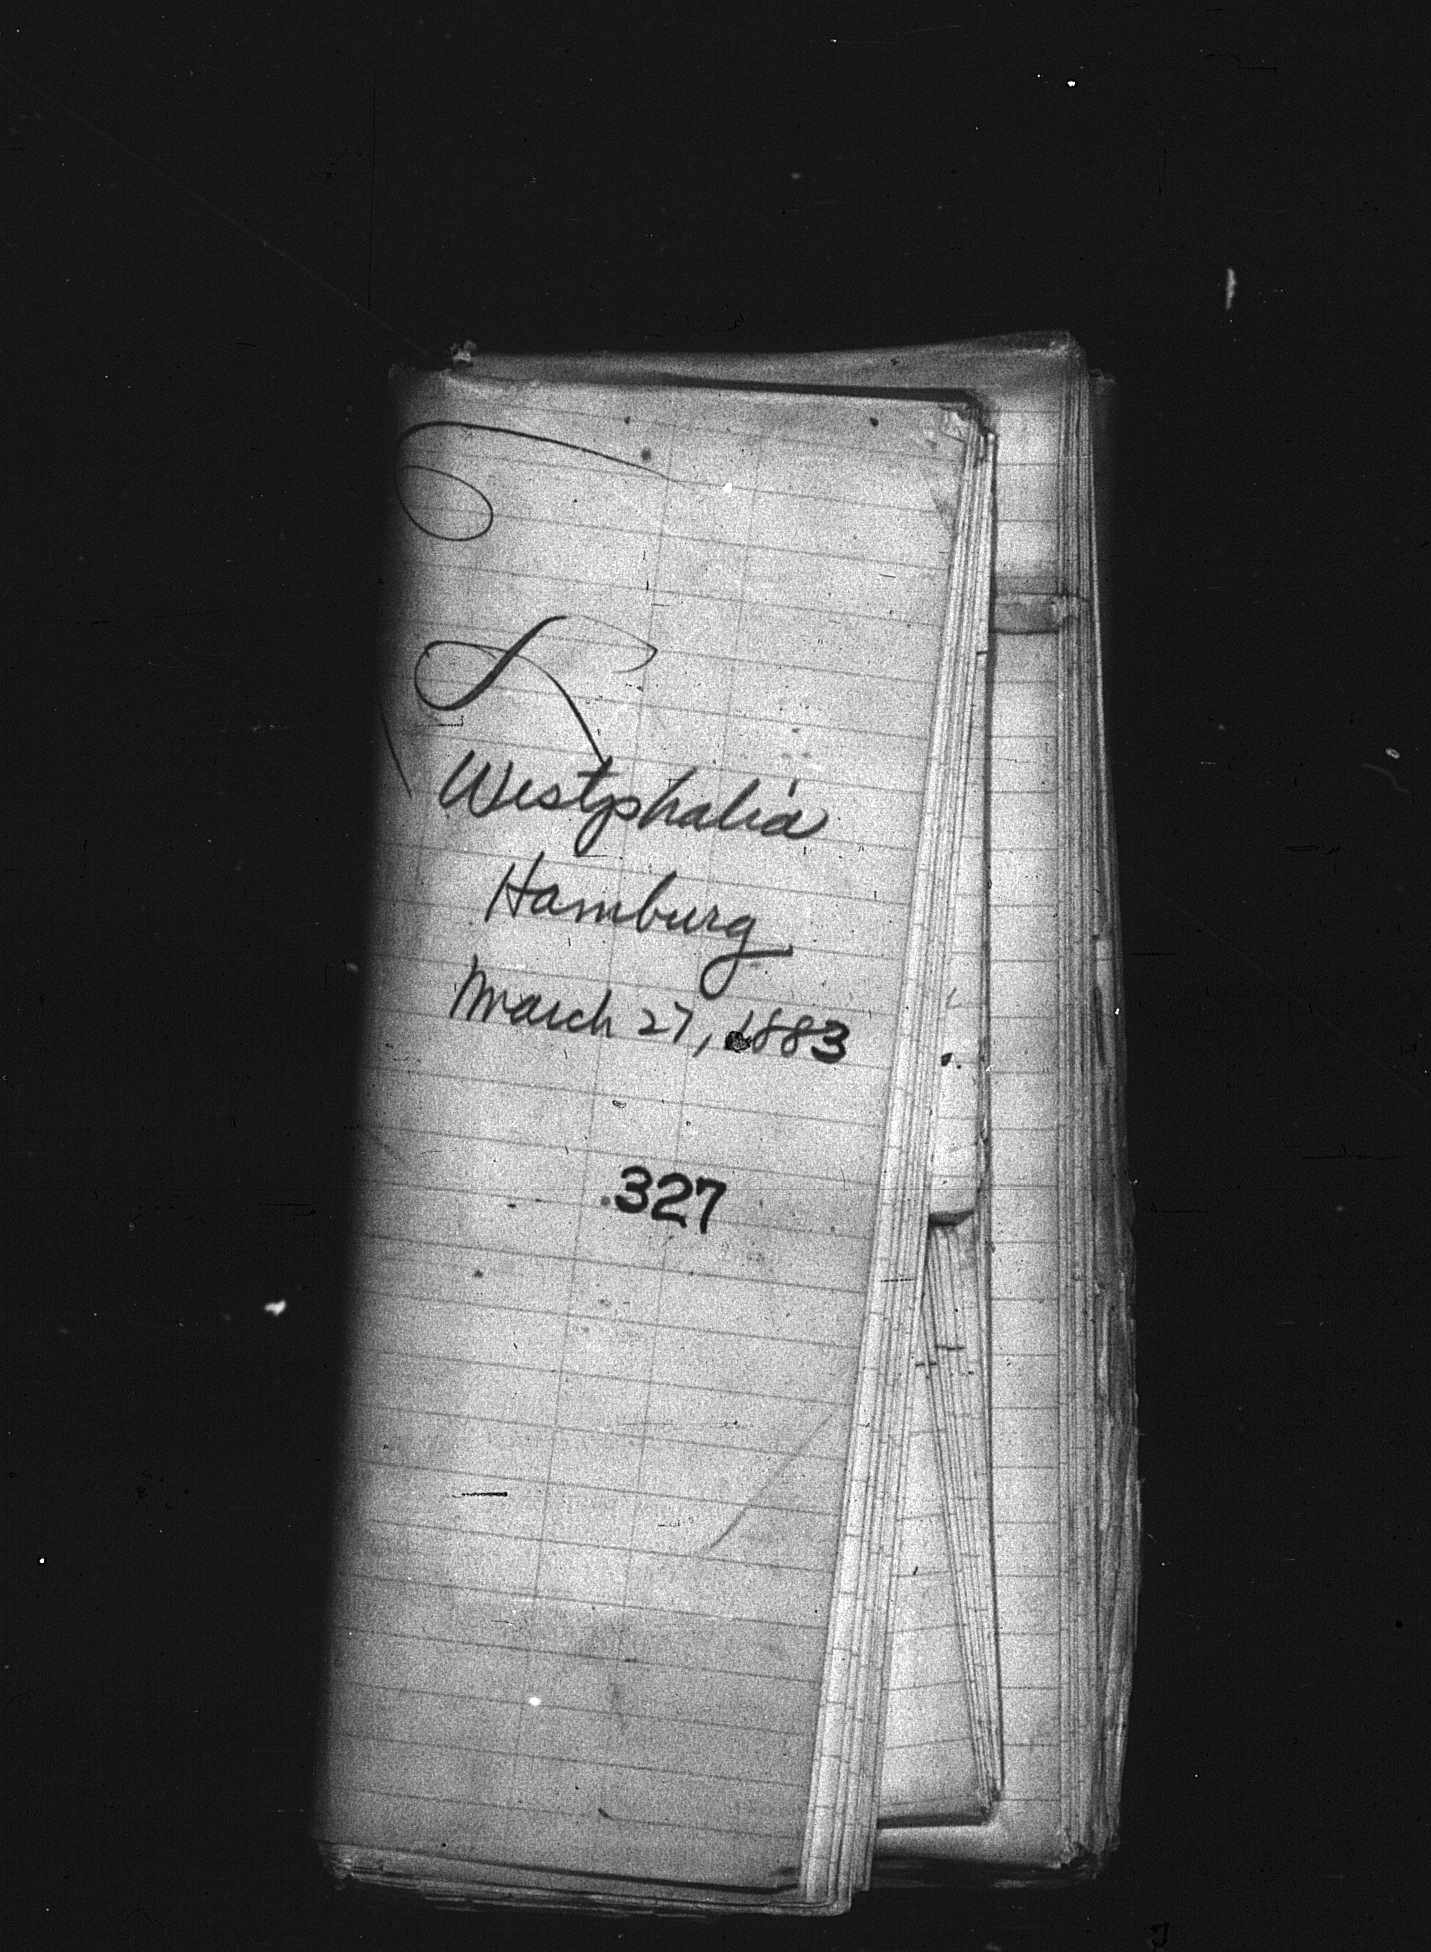 Westphalia
Hamburg
March 27, 1883
327